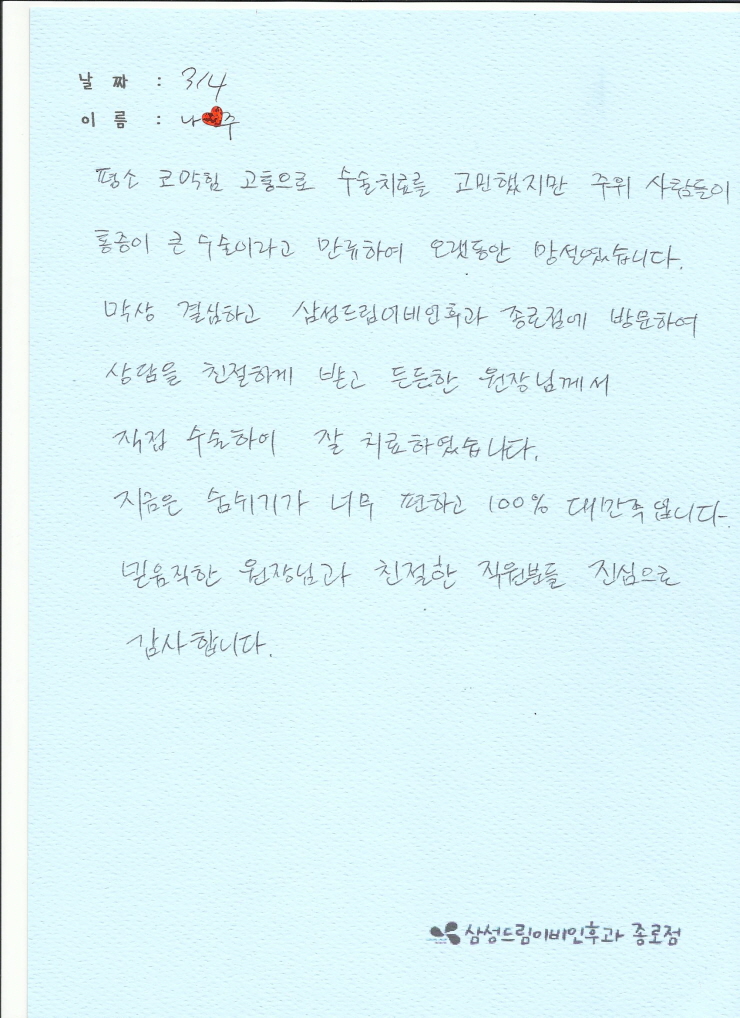 날 짜 : 3/4
이 름 : 나 주
평소 코막힘 고통으로 수술치료를 고민했지만 주위 사람들이
통증이 큰 수술이라고 만류하여 오랫동안 망설였습니다.
막상 결심하고 삼성드림이비인후과 종로점에 방문하여
상담을 친절하게 받고 든든한 원장님께서
직접 수술하여 잘 치료하였습니다.
지금은 숨쉬기가 너무 편하고 100% 대만족입니다.
믿음직한 원장님과 친절한 직원분들 진심으로
감사합니다.
삼성드림이비인후과 종로점